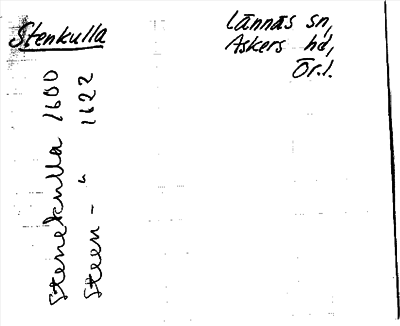 Stenkulla
Lännäs sn,
Askers hd,
Ör.l.
Stenekulla 1600
Steen - " 1622